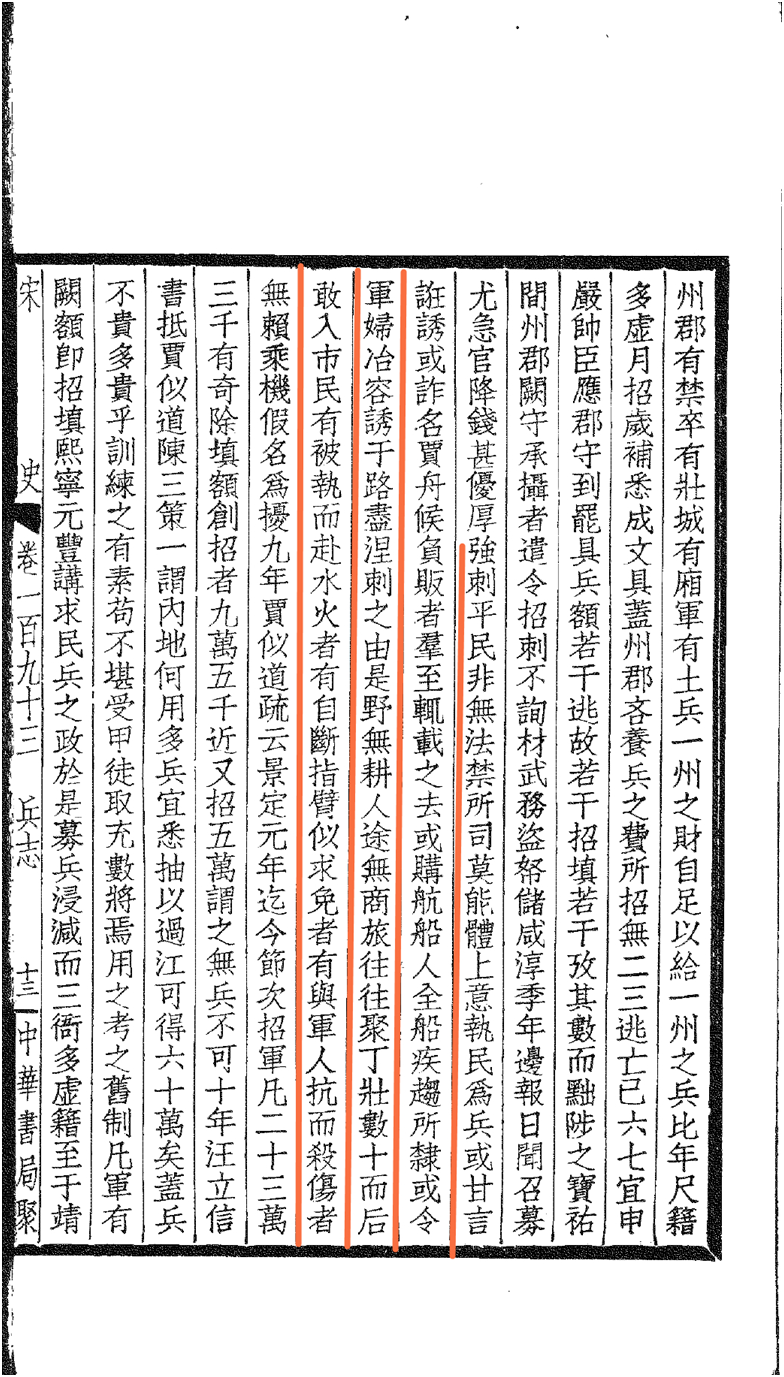 州郡有禁卒有壯城有廂軍有土兵一州之財自足以給一州之兵比年尺籍
多虛月招歲補悉成文具蓋州郡吝養兵之費所招無二三逃亡已六七宜申
嚴帥臣應郡守到罷具兵額若干逃故若干招填若干攷其數而黜陟之寶祐
間州郡闕守承攝者遣令招刺不詢材武務盜帑儲咸淳季年邊報日聞召募
尤急官降錢甚優厚強刺平民非無法禁所司莫能體上意執民爲兵或甘言
誑誘或詐名賈舟候負販者羣至輒載之去或購航船人全船疾趨所隸或令
軍婦冶容誘于路盡涅刺之由是野無耕人途無商旅往往聚丁壯數十而后
敢入市民有被執而赴水火者有自斷指臂似求免者有與軍人抗而殺傷者
無賴乘機假名爲擾九年賈似道疏云景定元年迄今節次招軍凡二十三萬
三千有奇除填額創招者九萬五千近又招五萬謂之無兵不可十年汪立信
書抵賈似道陳三策一謂內地何用多兵宜悉抽以過江可得六十萬矣蓋兵
不貴多貴乎訓練之有素苟不堪受甲徒取充數將焉用之考之舊制凡軍有
闕額卽招填熙寧元豐講求民兵之政於是募兵浸減而三衙多虛籍至于靖
宋 史 卷一百九十三 兵志 十三 中華書局聚